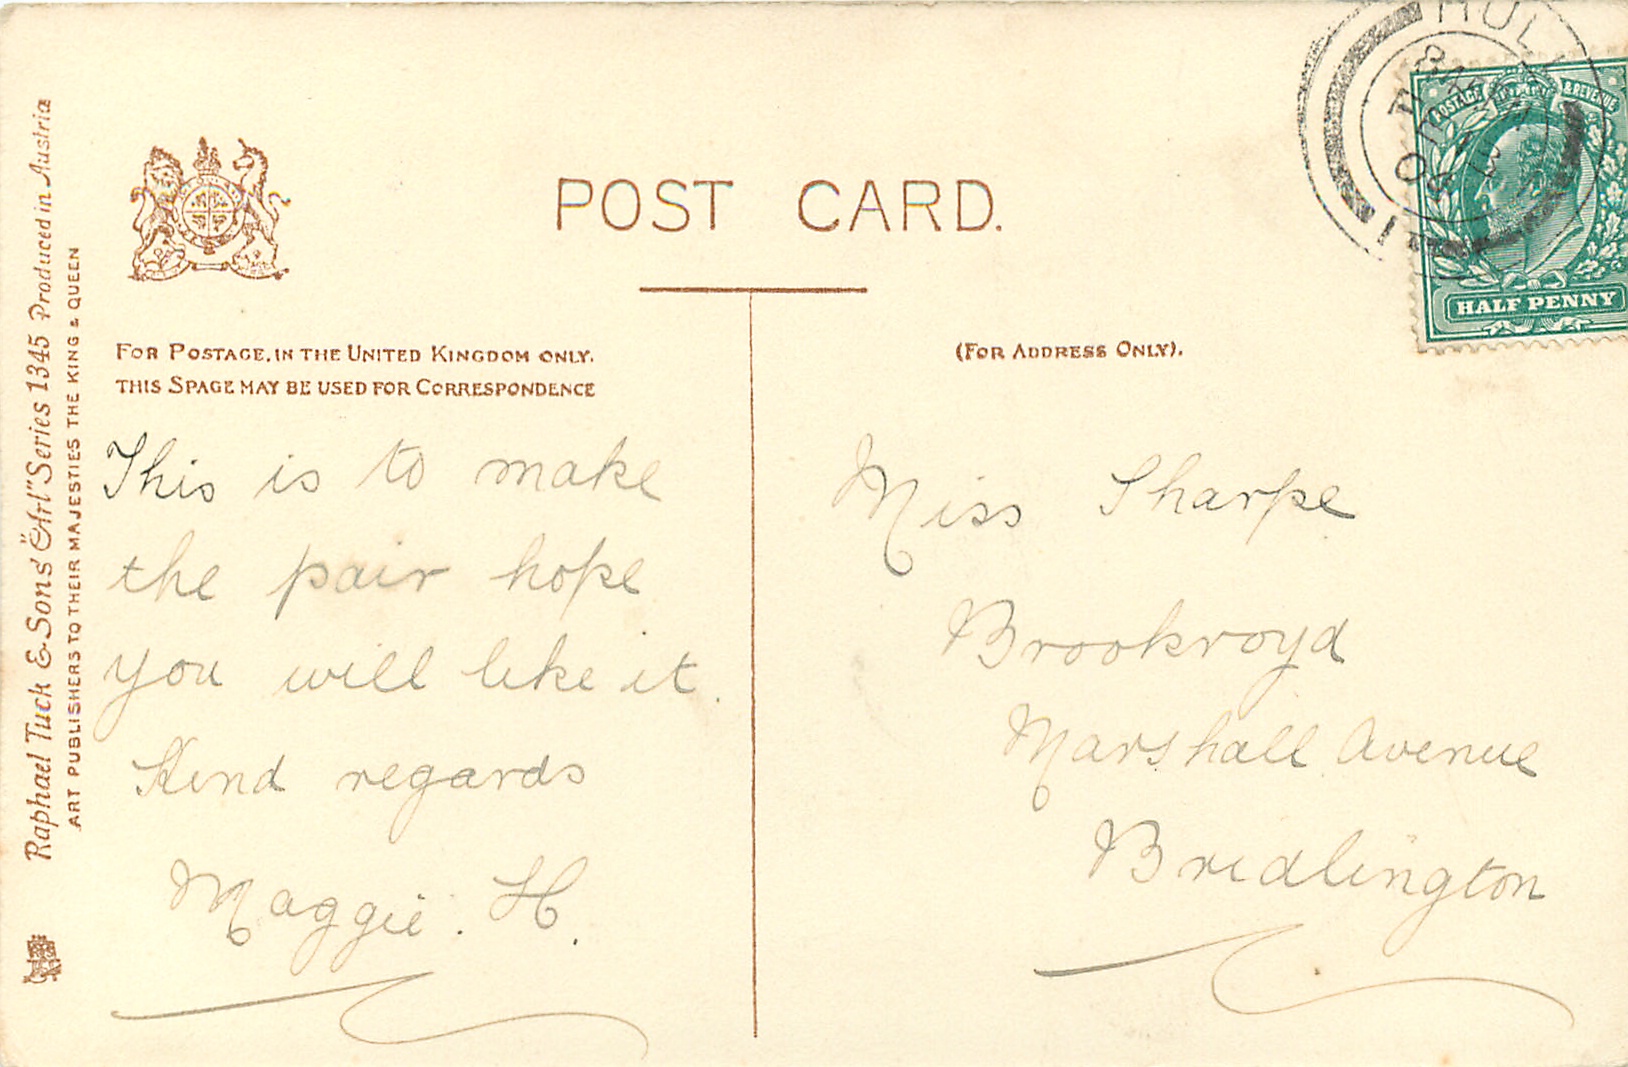 Raphael Tuck & Sons' "Art" Series 1345 Produced in Austria
ART PUBLISHERS TO THEIR MAJESTIES THE KING & QUEEN
POST CARD.
FOR POSTAGE, IN THE UNITED KINGDOM ONLY,
THIS SPAGE MAY BE USED FOR CORRESPONDENCE
This is to make
the pair hope
you will like it.
Kind regards
Maggie. H.
(FOR ADDRESS ONLY).
Miss Sharpe
Brookroyd
Marshall Avenue
Bridlington
HULL
POSTAGE & REVENUE
HALF PENNY